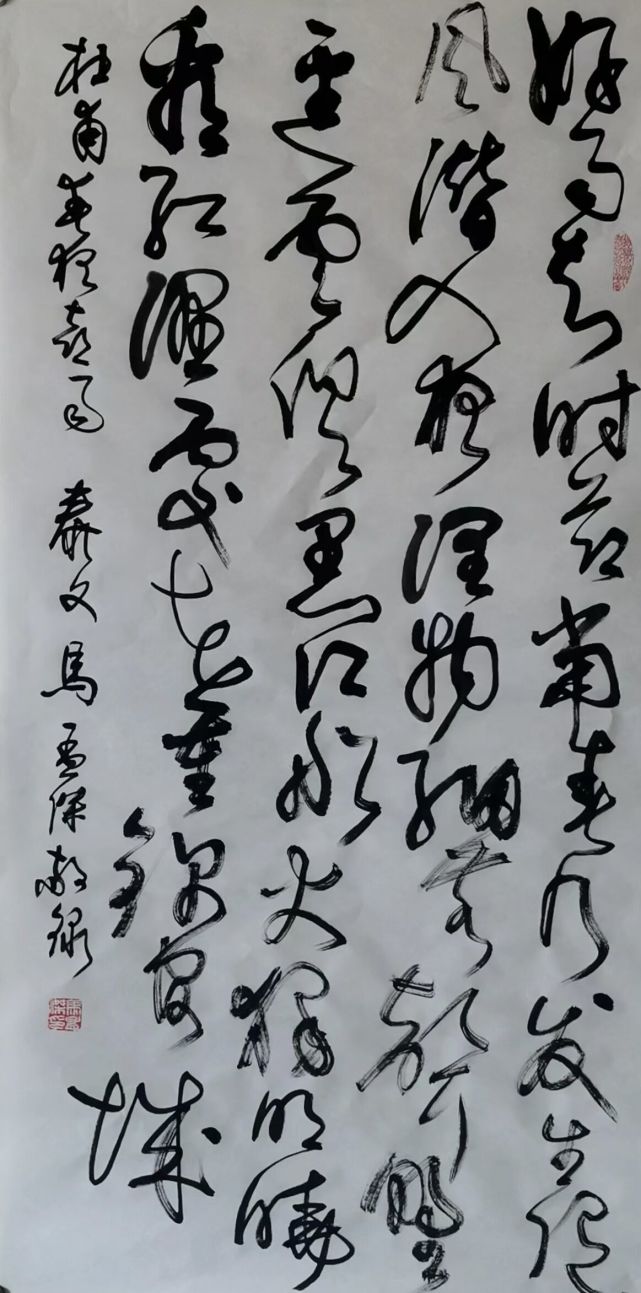 好雨知时节当春乃发生随
风潜入夜润物细无声野
迳云俱黑江船火独明晓
看红湿处花重锦官城
杜甫春夜喜雨 文馬孟傑敬录